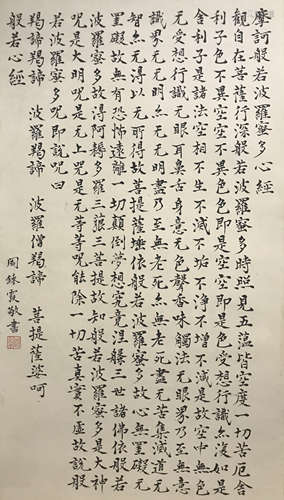 摩訶般若波羅蜜多心經
觀自在菩薩行深般若波羅蜜多時照見五蘊皆空度一切苦厄舍
利子色不異空空不異色色即是空空即是色受想行識亦復如是
舍利子是諸法空相不生不滅不垢不淨不增不減是故空中無色
无受想行識无眼耳鼻舌身意无色聲香味觸法无眼界乃至無意
識界无无明亦无无明盡乃至無老死亦無老死盡無苦集滅道无
智亦无得以无所得故菩提薩埵依般若波羅蜜多故心無罣礙无
罣礙故無有恐怖遠離一切顛倒夢想究竟涅槃三世諸佛依般若
波羅蜜多故得阿耨多羅三藐三菩提故知般若波羅蜜多是大神
咒是大明咒是无上咒是无等等咒能除一切苦真實不虛故說般
若波羅蜜多咒即說咒曰
羯諦羯諦 波羅羯諦 波羅僧羯諦 菩提薩婆呵
般若心經
周鍊霞敬書